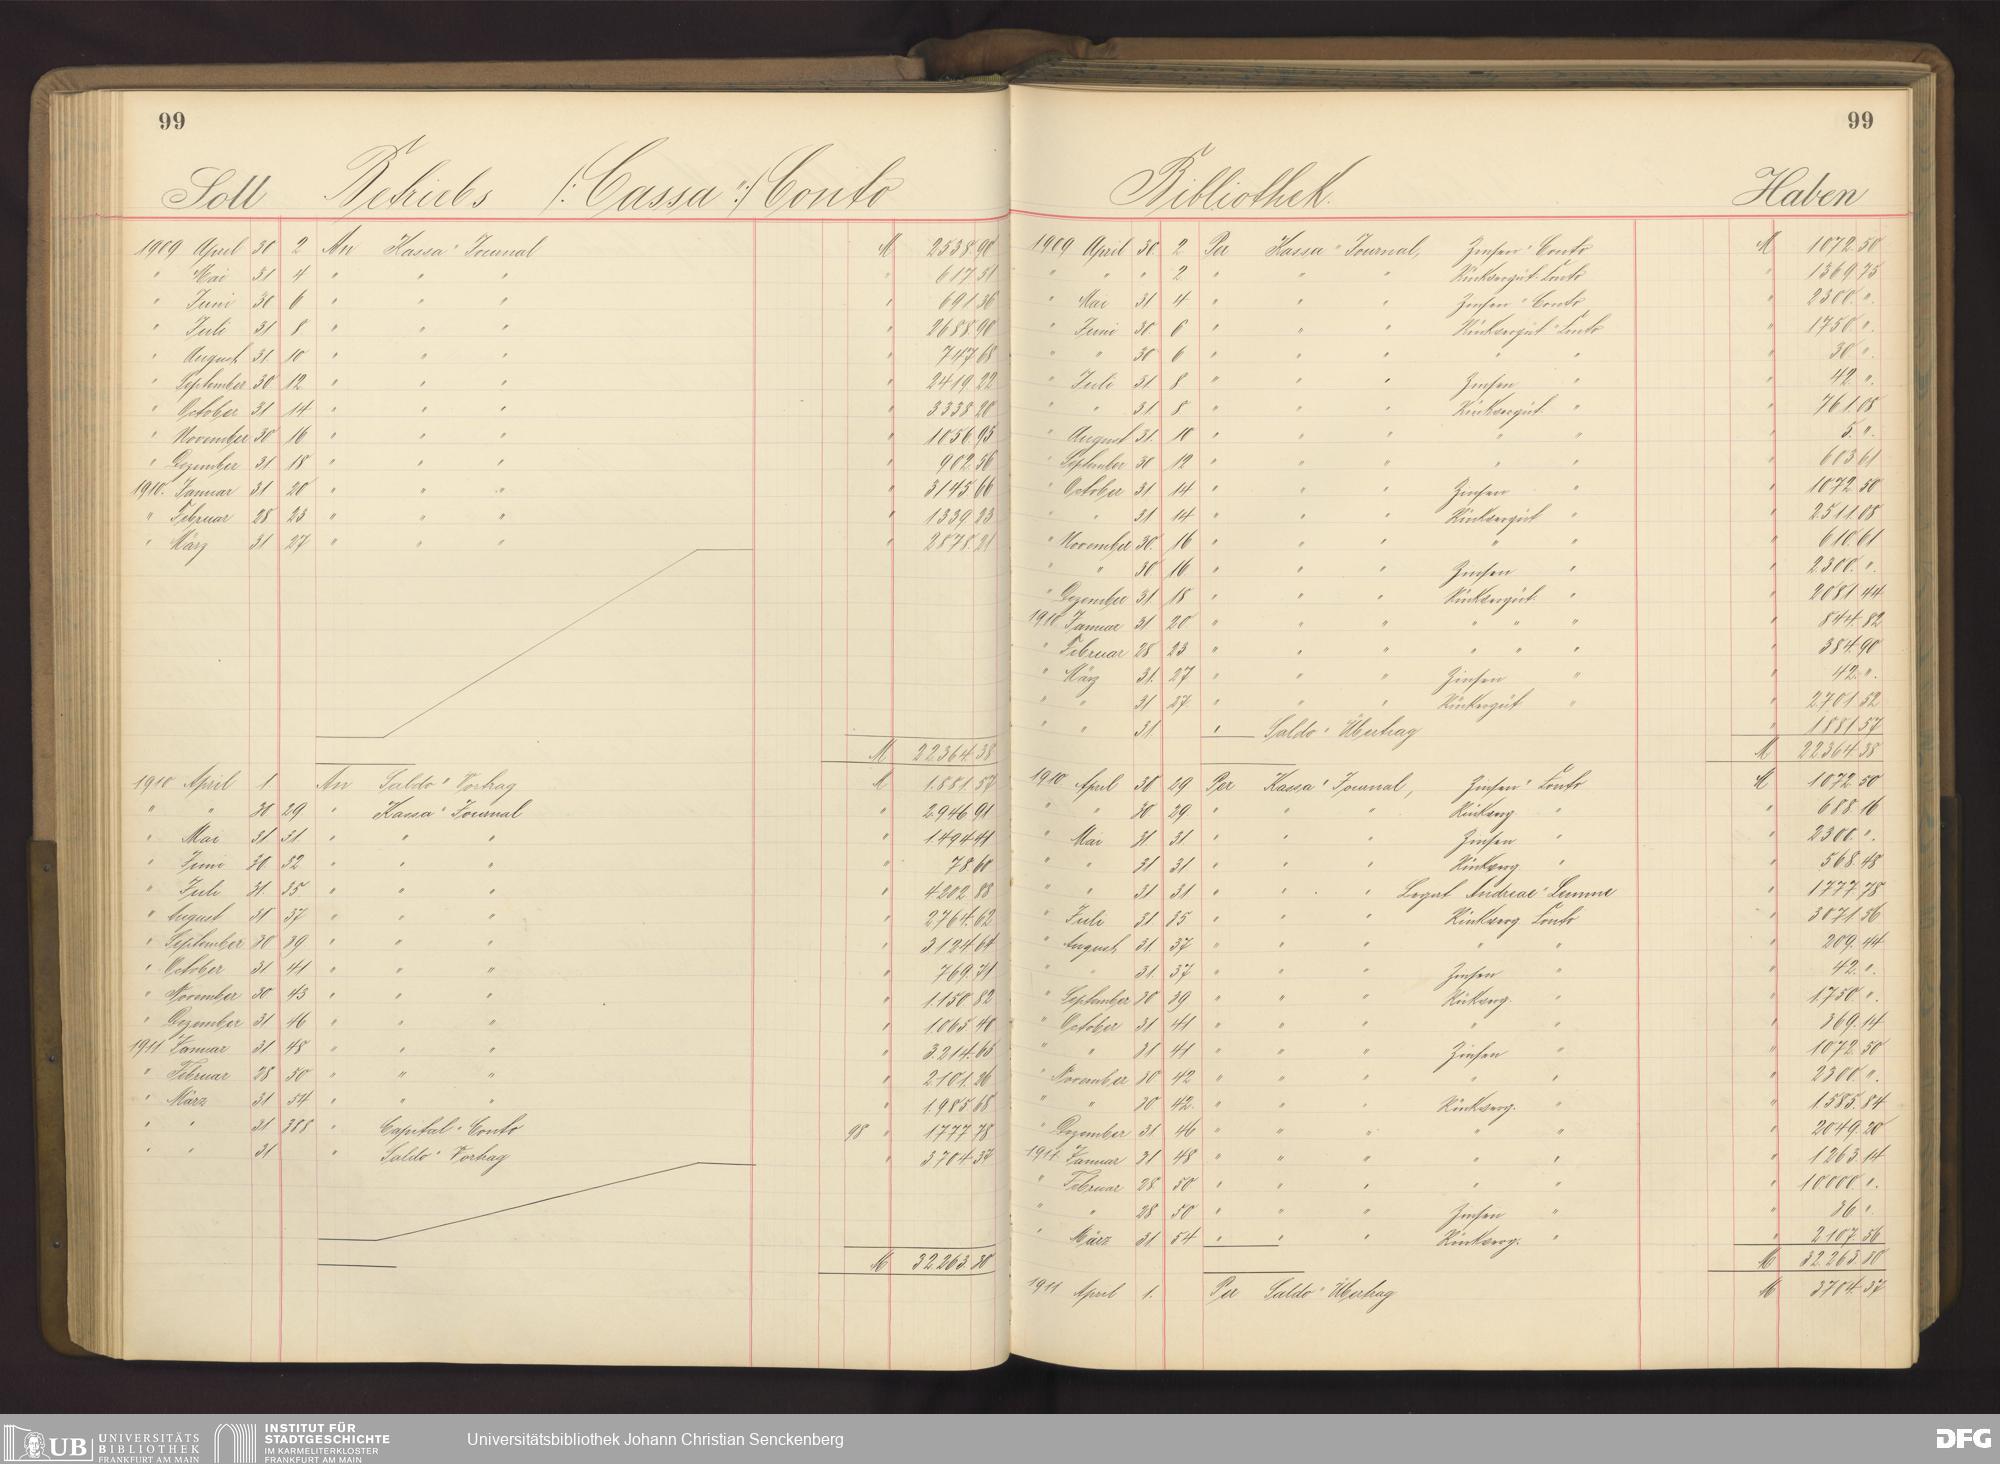 99
Soll Betriebs (:Cassa":) Conto
1909 April 30 2 An Kassa-Journal M 2538.90
" Mai 31 4 " " " " 617.51
" Juni 30 6 " " " " 691.36
" Juli 31 8 " " " " 2688.90
" August 31 10 " " " " 747.68
" September 30 12 " " " " 2419.22
" October 31 14 " " " " 3338.20
" November 30 16 " " " " 1056.95
" Dezember 31 18 " " " " 902.56
1910. Januar 31 20 " " " " 3145.66
" Februar 28 23 " " " " 1339.23
" März 31 27 " " " " 2878.21
M 22364.38
1910 April 1. An Saldo-Vortrag M 1.881.57
" " 30 29 " Kassa-Journal " 2.946.91
" Mai 31 31. " " " " 1.494.41
" Juni 30 32 " " " " 78.60
" Juli 31. 35 " " " " 4.202.88
" August 31 37 " " " " 2.764.62
" September 30 39 " " " " 3.124.64
" October 31 41 " " " " 769.71
" November 30 43 " " " " 1.150.82
" Dezember 31 46 " " " " 1.065.40
1911 Januar 31 48 " " " " 3.214.65
" Februar 28 50 " " " " 2.101.26
" März 31 54 " " " " 1.985.68
" " 31 388 " Capital-Conto 98 " 1777.78
" " 31 " Saldo-Vortrag " 3704.37
M 32.263.30
99
Bibliothek. Haben
1909 April 30. 2 Per Kassa-Journal, Zinsen-Conto M 1072.50
" " " 2 " " " Rückvergüt.-Conto " 1369.75
" Mai 31 4 " " " Zinsen-Conto " 2300. ".
" Juni 30. 6 " " " Rückvergüt-Conto " 1750. ".
" " 30 6 " " " " " " 30 ".
" Juli 31. 8 " " " Zinsen " " 42 ".
" " 31. 8 " " " Rückvergüt. " " 761.08
" August 31. 10 " " " " " " 5. ".
" September 30 12 " " " " " " 603.61
" October 31 14 " " " Zinsen " " 1072.50
" " 31 14 " " " Rückvergüt " " 2.511.08
" November 30. 16 " " " " " " 610.61
" " 30 16 " " " Zinsen " " 2.300. ".
" Dezember 31. 18 " " " Rückvergüt. " " 2081.44
1910 Januar 31 20 " " " " " " " 844.82
" Februar 28 23 " " " " " " " 384.90
" März 31. 27 " " " Zinsen " " 42. ".
" " 31 27. " " " Rückvergüt " " 2.701.52
" " 31 " Saldo-Übertrag " 1.881.57
M 22364.38
1910 April 30 29 Per Kassa-Journal, Zinsen-Conto M 1072.50
" " 30 29. " " " Rückverg. " " 688.16
" Mai 31 31 " " " Zinsen " " 2300. ".
" " 31 31. " " " Rückverg " " 568.48
" " 31 31 " " " Legat Andreae-Lemme " 1777.78
" Juli 31 35 " " " Rückverg. Conto " 3071.56
" August 31. 37 " " " " " " 209.44
" " 31. 37 " " " Zinsen " " 42. ".
" September 30 39 " " " Rückverg. " " 1.750. ".
" October 31 41 " " " " " " 369.14
" " 31 41 " " " Zinsen " " 1072.50
" November 30 42 " " " " " " 2300. ".
" " 30 42. " " " Rückverg. " " 1.585.84
" Dezember 31 46 " " " " " " 2049.20
1911 Januar 31 48 " " " " " " 1.263.14
" Februar 28. 50 " " " " " " 10000. ".
" " 28 50 " " " Zinsen " " 36 ".
" März 31 54 " " " Rückverg. " " 2.107.56
M 32.263.30
1911 April 1. Per Saldo-Übertrag M 3704.37
UB UNIVERSITÄTS
BIBLIOTHEK
FRANKFURT AM MAIN
INSTITUT FÜR
STADTGESCHICHTE
IM KARMELITERKLOSTER
FRANKFURT AM MAIN
Universitätsbibliothek Johann Christian Senckenberg
DFG